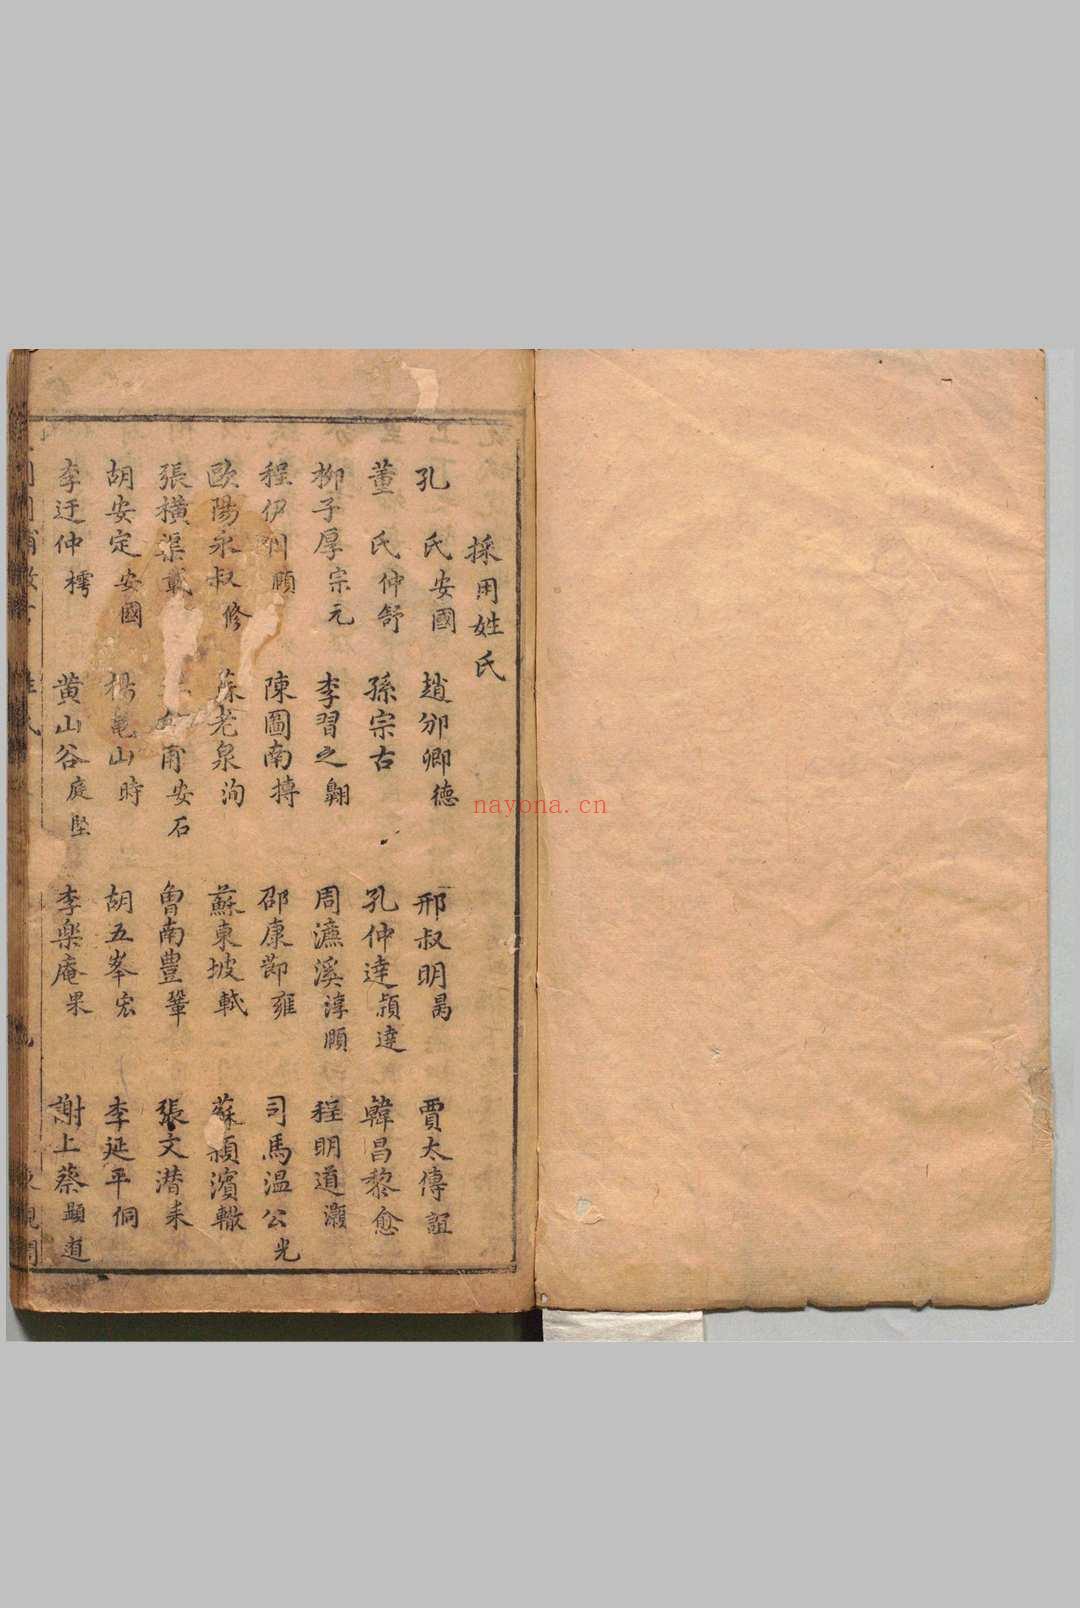 採用姓氏
孔氏安國 趙邠卿德 邢叔明昺 賈太傅誼
董氏仲舒 孫宗古 孔仲達頴達 韓昌黎愈
柳子厚宗元 李習之翶 周濂溪淳頤 程明道灝
程伊川頤 陳圖南摶 邵康節雍 司馬温公光
歐陽永叔修 蘇老泉洵 蘇東坡軾 蘇潁濱轍
張橫渠載 甫安石 曾南豊鞏 張文潜耒
胡安定安國 楊亀山時 胡五峯宏 李延平侗
李迂仲樗 黄山谷庭坚 李楽庵果 謝上蔡顕道
nayona.cn